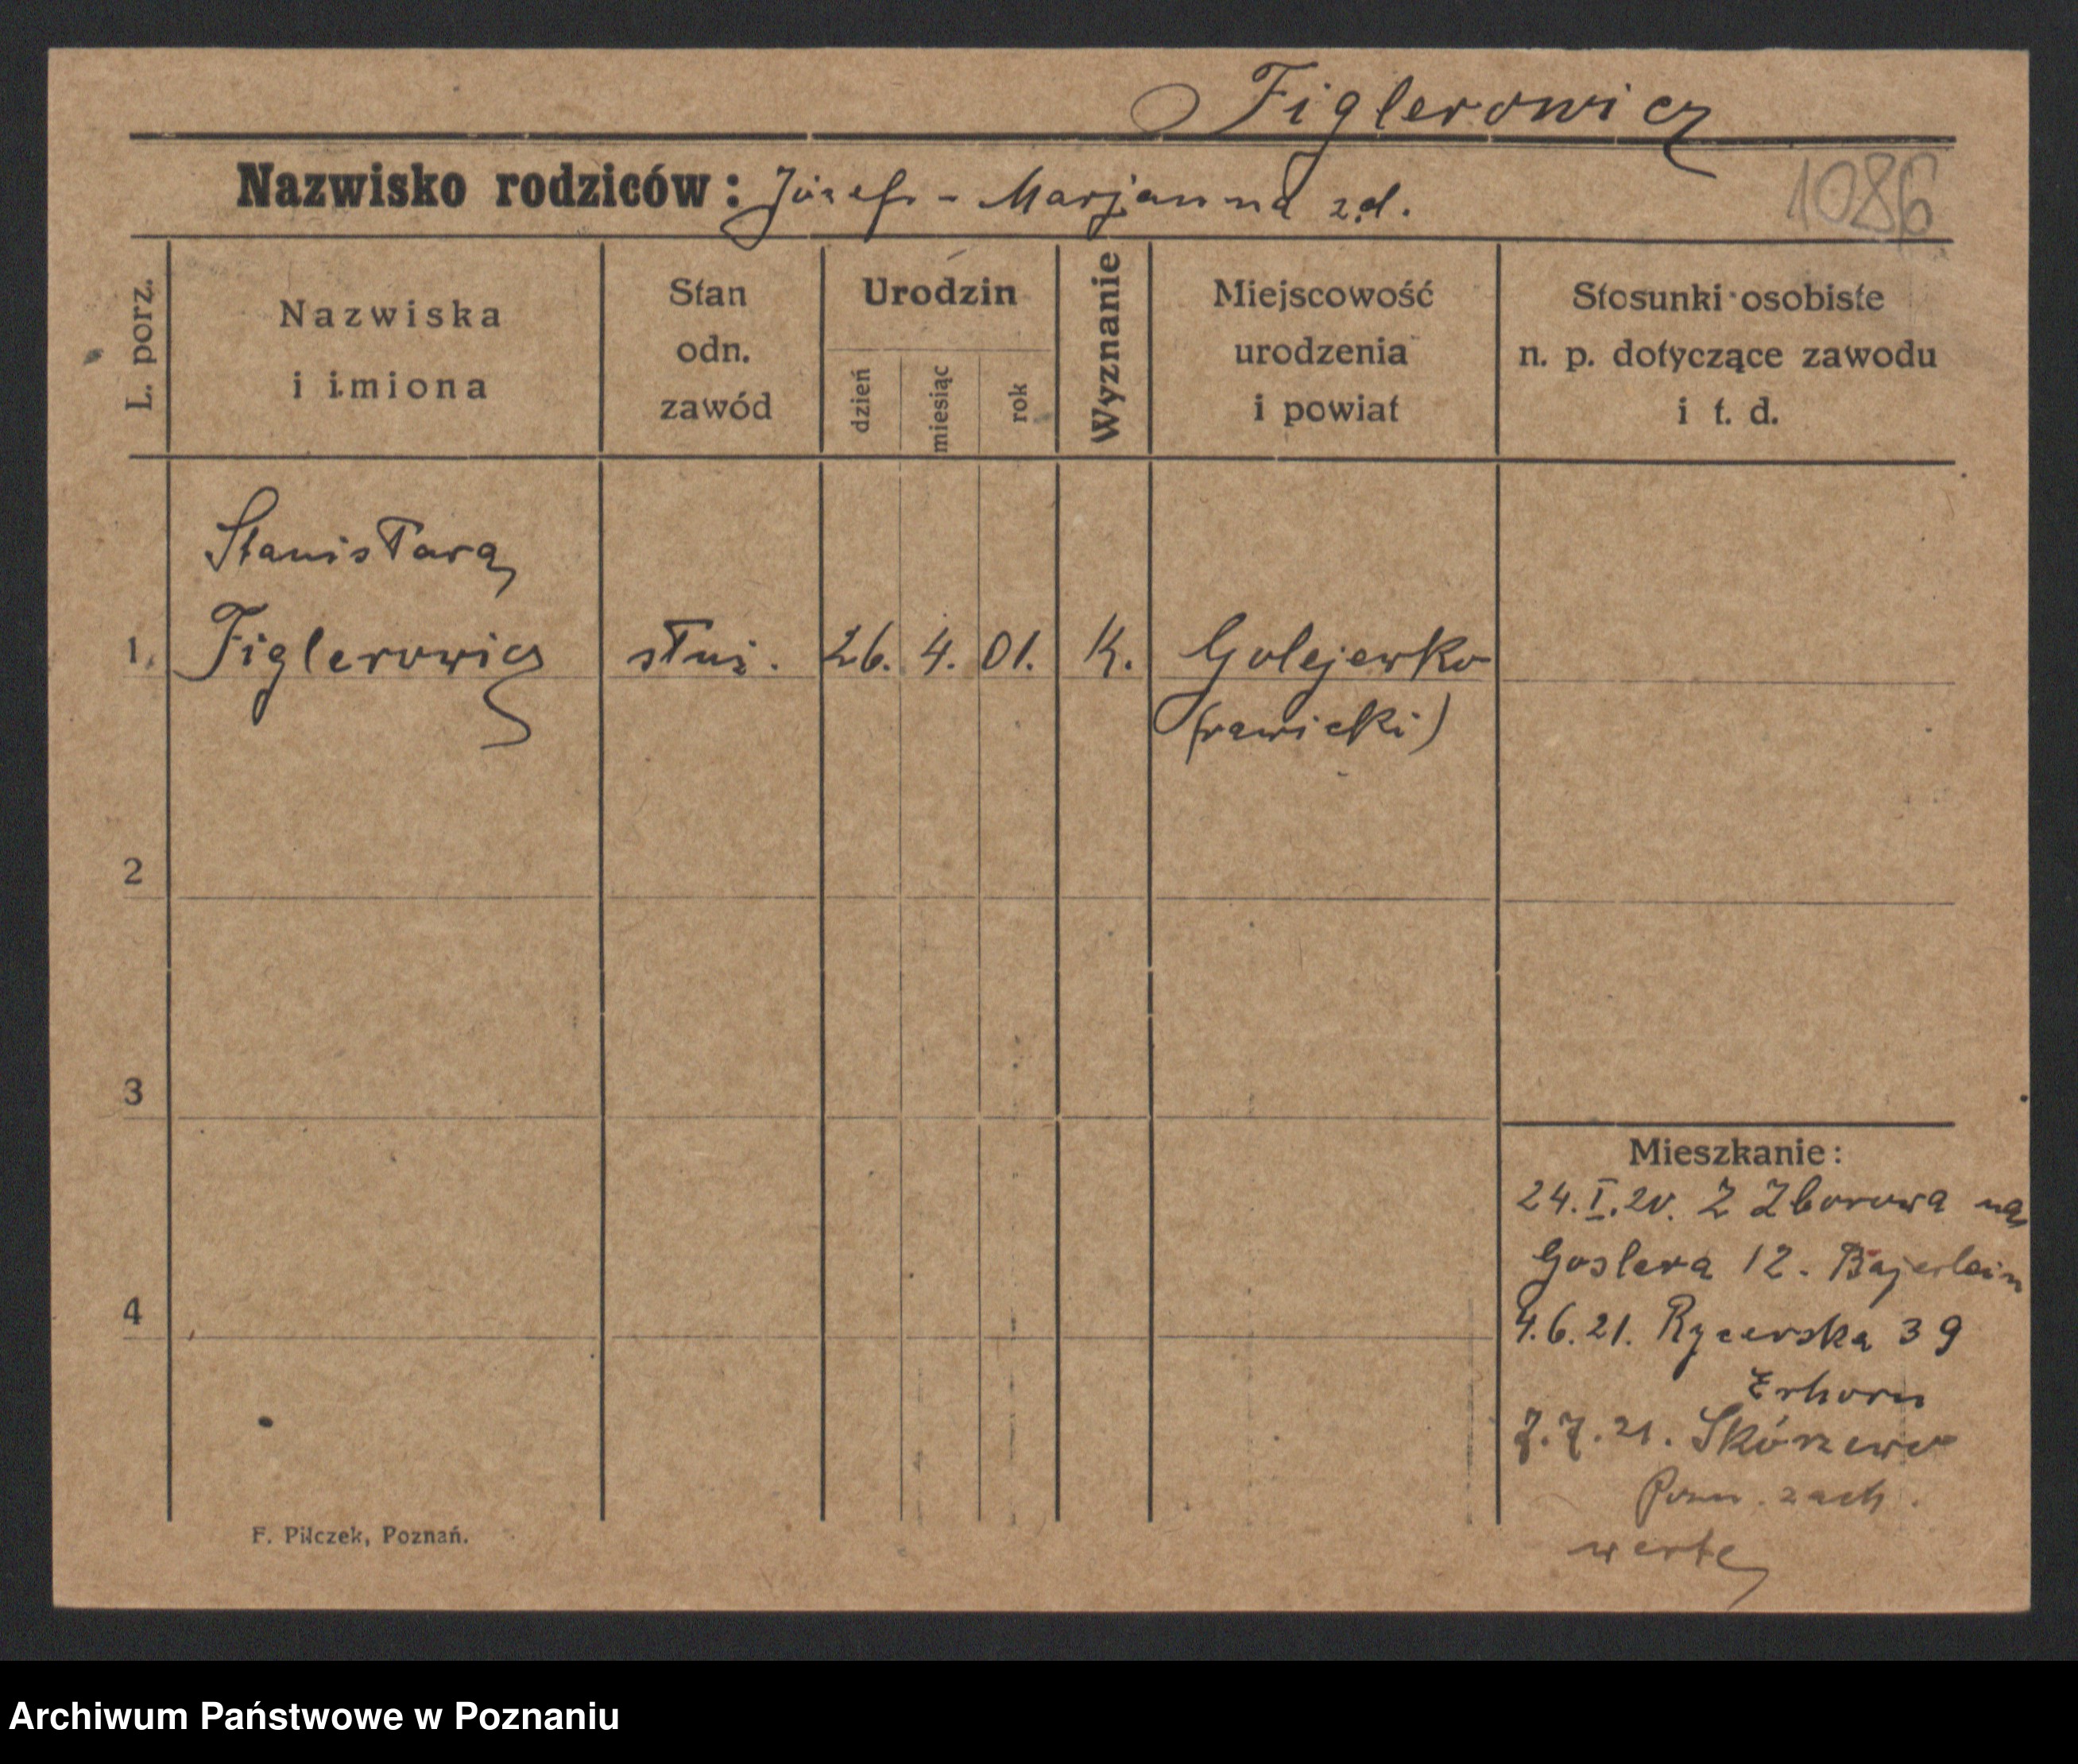 Figlerowicz
Nazwisko rodziców: Józef - Marjanna z.d.
1086
L. porz.
Nazwiska
i imiona
Stan
odn.
zawód
Urodzin
dzień
miesiąc
rok
Wyznanie
Miejscowość
urodzenia
i powiat
Stosunki osobiste
n. p. dotyczące zawodu
i t. d.
Stanisława
1. Figlerowicz służ. 26. 4. 01. K. Golejewko
(rawicki)
2
3
4
Mieszkanie:
24.I.20. Z Zborowa na
Goslera 12. Bajerlein
4.6.21. Rycerska 39
Erhorn
7.7.21. Skórzewo
Pozn. zach.
werte
F. Pilczek, Poznań.
Archiwum Państwowe w Poznaniu